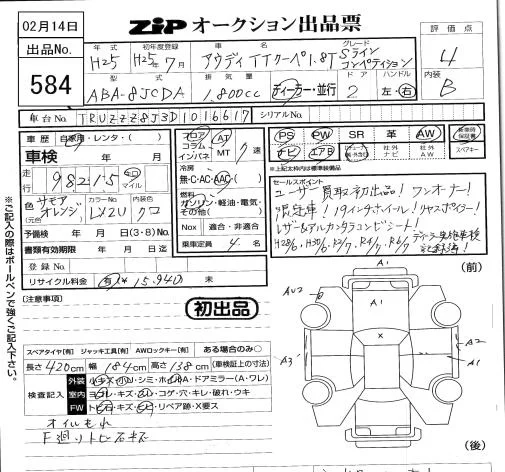 02月14日
ZIPオークション出品票
出品No.
584
年式 H25
初年度登録 H25年7月
車名 アウディTTクーペ1.8T
グレード Sラインコンペティション
型式 ABA-8JCDA
排気量 1,800cc
ディーラー・並行
ドア 2
ハンドル 左・右
評価点 4
内装 B
車台No. TRUZZZ8J3D1016617
シリアルNo.
車歴 自家用・レンタ・( )
車検 年 月
走行 98215 キロ マイル
色(元色) サモアオレンジ
カラーNo. LX2U
内装色 クロ
予備検 年 月 日(3・8)No.
書類有効期限 年 月 日迄
登録No.
リサイクル料金 有 ¥15,940 未
フロア コラム インパネ
AT MT 7速
冷房 無・C・AC・AAC
燃料 ガソリン・軽油・電気・その他( )
Nox 適合・非適合
乗車定員 4名
PS PW SR 革 AW
ナビ エアB 社外ナビ 社外AW
新車時保証書 スペアキー
※上記太枠内は標準装備品
セールスポイント
ユーザー買取初出品!ワンオーナー!
限定車!19インチホイール!リヤスポイラー!
レザー&アルカンタラコンビシート!
H28/6、H30/6、R2/7、R4/7、R6/7 ディーラー点検車検記録簿!
初出品
(注意事項)
スペアタイヤ[有] ジャッキ工具[有] AWロックキー[有] ある場合のみ○
長さ 420cm 幅 184cm 高さ 138cm (車検証上の寸法)
検査記入
外装 小キズ・小U・シミ・ホイルA・ドアミラー(A・ワレ)
室内 ヨゴレ・キズ・スレ・コゲ・穴・キレ・破れ・ウキ
FW トビ石・キズ・サビ・リペア跡・X要ス
オイルもれ
F廻りトビ石キズ
(前)
A1
AU2
A1
X
A3
A2
A1
(後)
※ご記入の際はボールペンで強くご記入下さい。